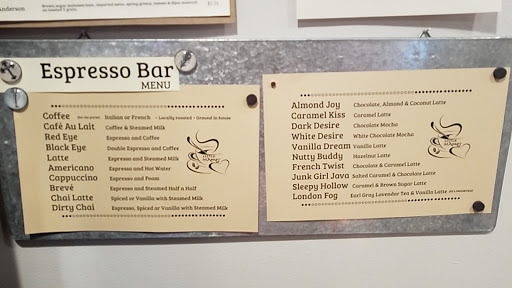 Anderson
Espresso Bar
MENU
Coffee Italian or French - Locally roasted - Ground in house
Café Au Lait Coffee & Steamed Milk
Red Eye Espresso and Coffee
Black Eye Double Espresso and Coffee
Latte Espresso and Steamed Milk
Americano Espresso and Hot Water
Cappuccino Espresso and Foam
Brevé Espresso and Steamed Half n Half
Chai Latte Spiced or Vanilla with Steamed Milk
Dirty Chai Espresso, Spiced or Vanilla with Steamed Milk
Almond Joy Chocolate, Almond & Coconut Latte
Caramel Kiss Caramel Latte
Dark Desire Chocolate Mocha
White Desire White Chocolate Mocha
Vanilla Dream Vanilla Latte
Nutty Buddy Hazelnut Latte
French Twist Chocolate & Caramel Latte
Junk Girl Java Salted Caramel & Chocolate Latte
Sleepy Hollow Caramel & Brown Sugar Latte
London Fog Earl Grey Lavender Tea & Vanilla Latte